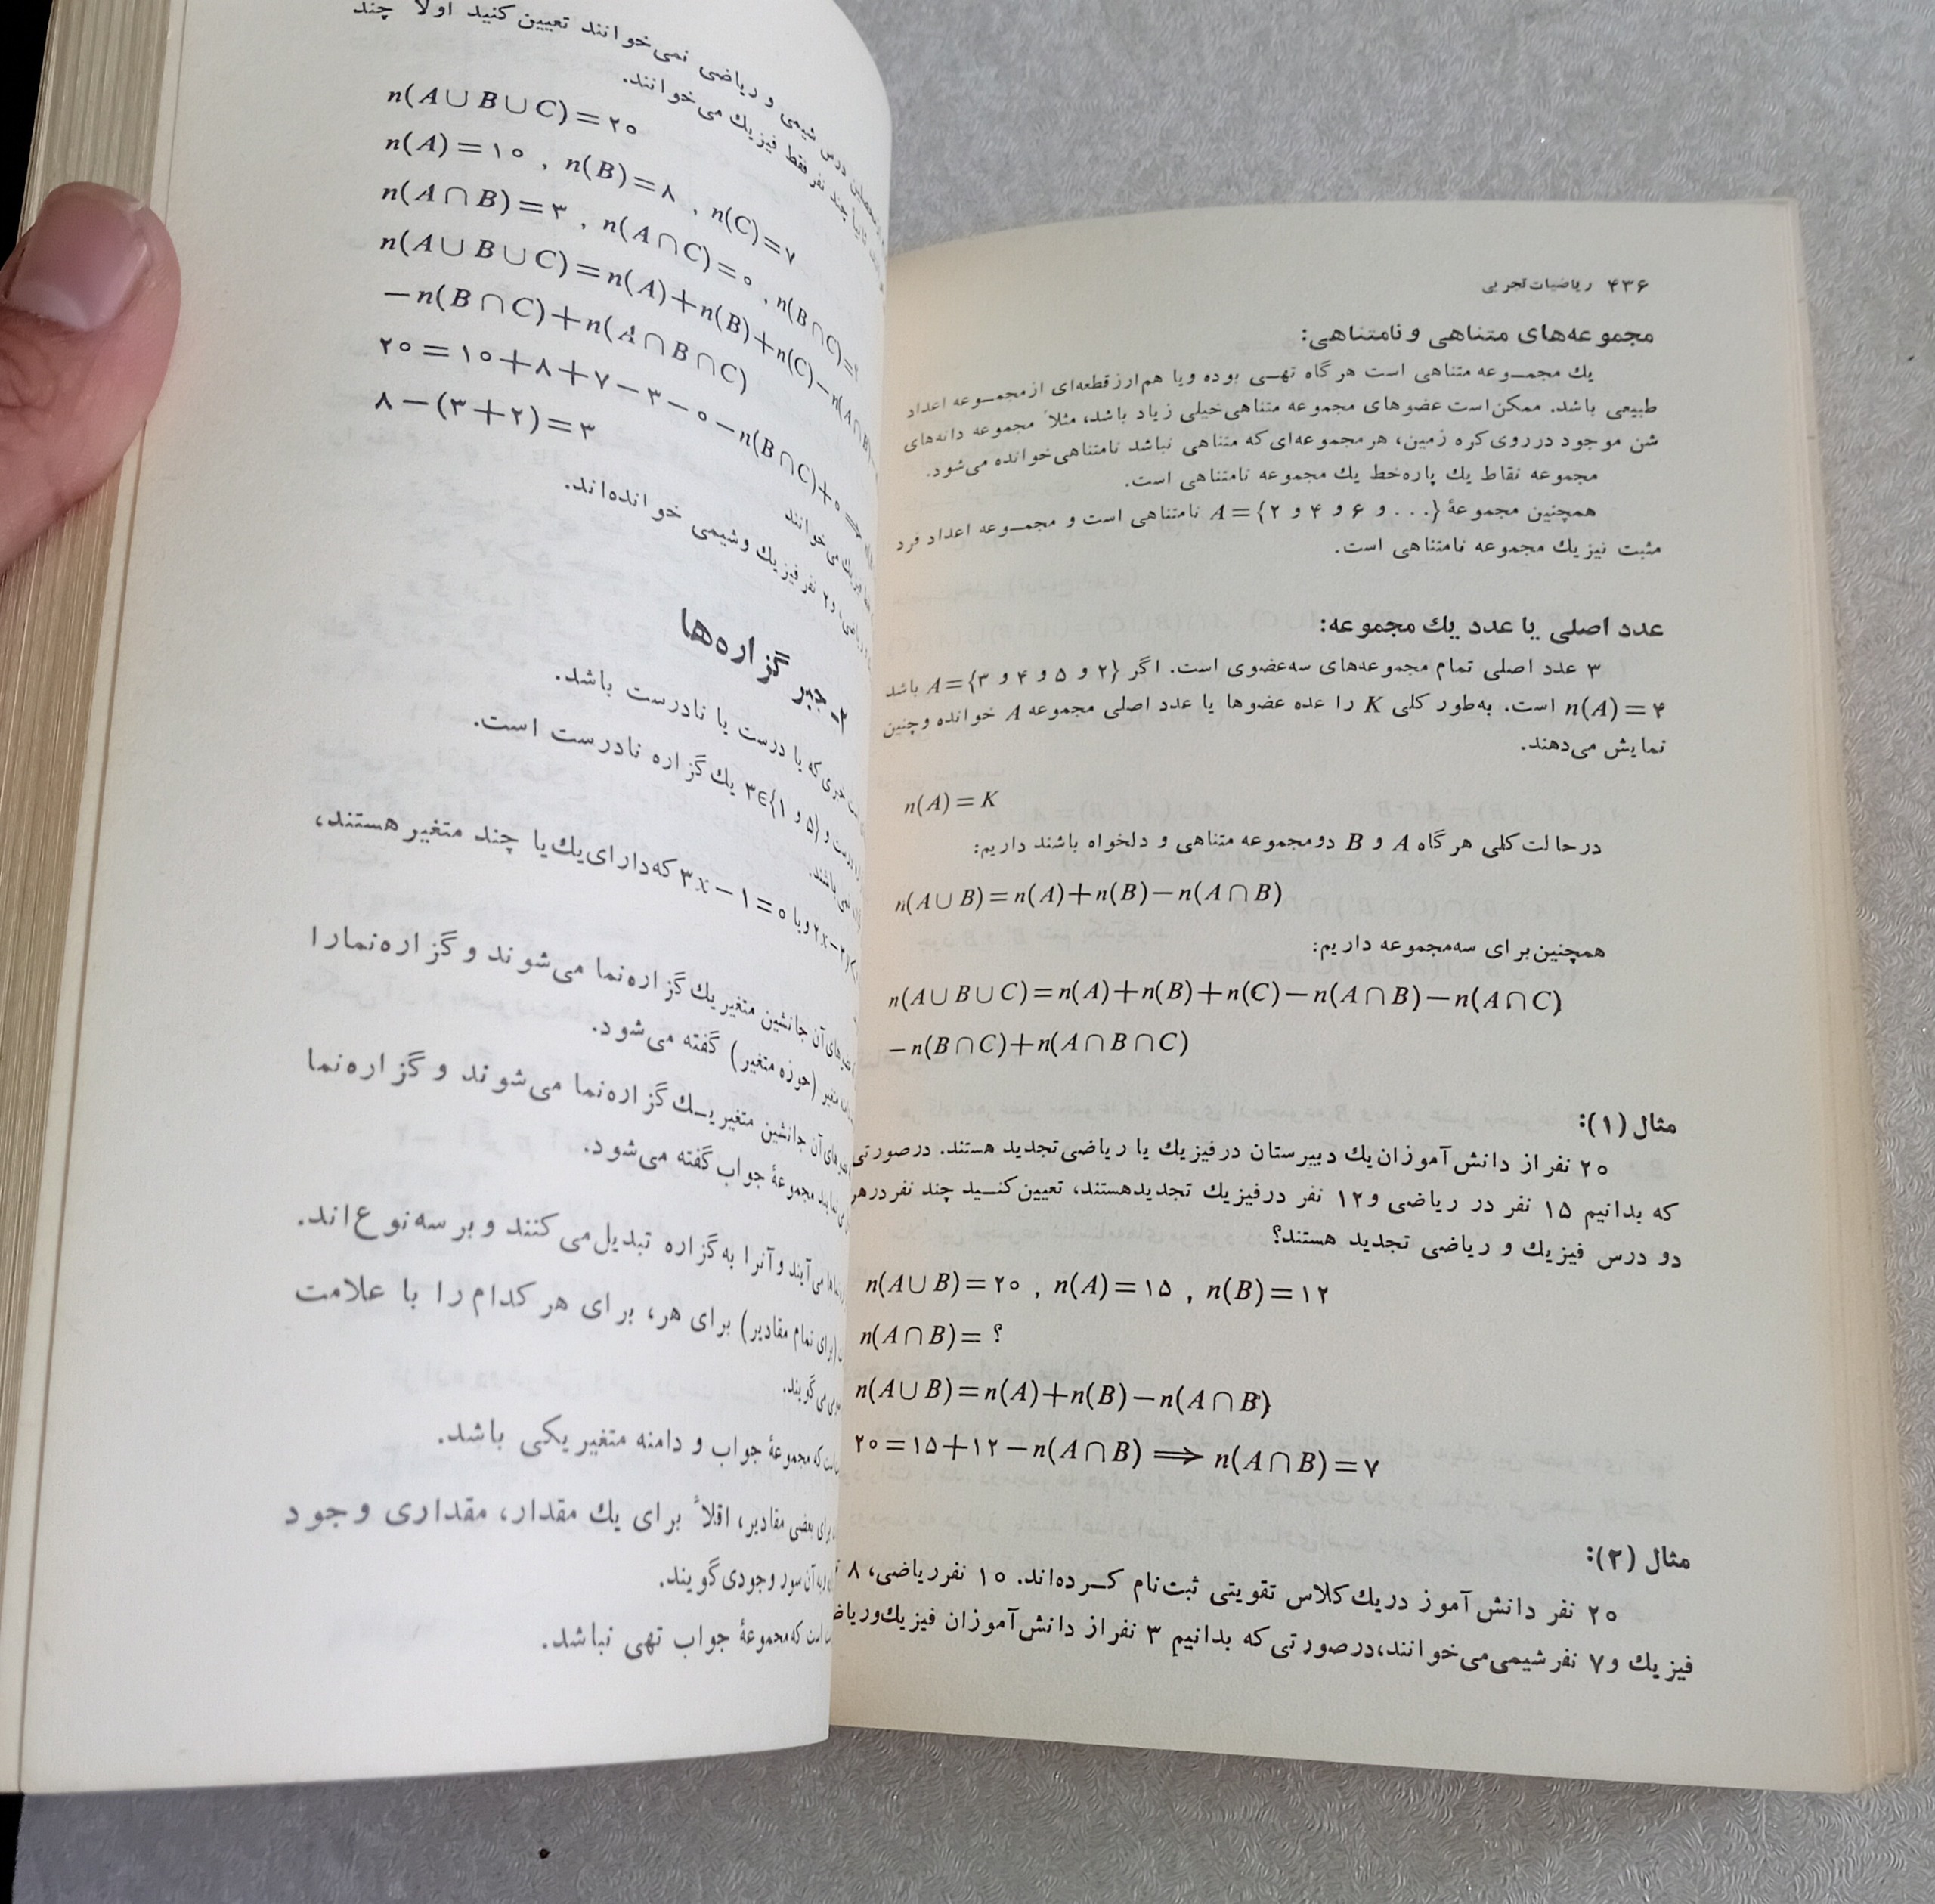 ۴۳۶ ریاضیات تجربی
مجموعه‌های متناهی و نامتناهی:
یك مجموعه متناهی است هرگاه تهی بوده ویا هم‌ارز قطعه‌ای ازمجموعه اعداد
طبیعی باشد. ممکن‌است عضوهای مجموعه متناهی‌خیلی زیاد باشد، مثلاً مجموعه دانه‌های
شن موجود درروی‌کره زمین، هرمجموعه‌ای‌که متناهی نباشد نامتناهی‌خوانده می‌شود.
مجموعه نقاط یك پاره‌خط یك مجموعه نامتناهی است.
همچنین مجموعهٔ A={۲ و ۴ و ۶ و ...} نامتناهی است و مجموعه اعداد فرد
مثبت نیزیك مجموعه نامتناهی است.
عدد اصلی یا عدد یك مجموعه:
۳ عدد اصلی تمام مجموعه‌های سه‌عضوی است. اگر A={۳ و ۴ و ۵ و ۲} باشد
n(A)=۴ است. به‌طور کلی K را عده عضوها یا عدد اصلی مجموعه A خوانده وچنین
نمایش می‌دهند.
n(A)=K
درحالت‌کلی هرگاه A و B دومجموعه متناهی و دلخواه باشند داریم:
n(A∪B)=n(A)+n(B)−n(A∩B)
همچنین‌برای سه‌مجموعه داریم:
n(A∪B∪C)=n(A)+n(B)+n(C)−n(A∩B)−n(A∩C)
−n(B∩C)+n(A∩B∩C)
مثال (۱):
۲۰ نفر از دانش‌آموزان‌یك دبیرستان درفیزیك یا ریاضی‌تجدید هستند. درصورتی
که بدانیم ۱۵ نفر در ریاضی و۱۲ نفر درفیزیك تجدیدهستند، تعیین‌کنید چند نفردرهر
دو درس فیزیك و ریاضی تجدید هستند؟
n(A∪B)=۲۰ , n(A)=۱۵ , n(B)=۱۲
n(A∩B)= ؟
n(A∪B)=n(A)+n(B)−n(A∩B)
۲۰=۱۵+۱۲−n(A∩B)⟹n(A∩B)=۷
مثال (۲):
۲۰ نفر دانش‌آموز دریك‌کلاس تقویتی ثبت‌نام کرده‌اند. ۱۰ نفرریاضی، ۸
فیزیك و۷ نفرشیمی‌می‌خوانند،درصورتی‌که بدانیم ۳ نفراز دانش‌آموزان فیزیك‌و
درس شیمی و ریاضی نمی‌خوانند تعیین‌کنید اولاً چند
چند نفر فقط فیزیك می‌خوانند.
n(A∪B∪C)=۲۰
n(A)=۱۰ , n(B)=۸ , n(C)=۷
n(A∩B)=۳ , n(A∩C)=۰ , n(B∩C)=
n(A∪B∪C)=n(A)+n(B)+n(C)−n(A∩B)
−n(B∩C)+n(A∩B∩C)
۲۰=۱۰+۸+۷−۳−۰−n(B∩C)+۰⟹
۸−(۳+۲)=۳
می‌خوانند
و۲ نفرفیزیك وشیمی خوانده‌اند.
۲ـ جبر گزاره‌ها
خبری‌که یا درست یا نادرست باشد.
و {۵ و ۱}∋۳ یك‌گزاره نادرست است.
نمی‌باشند.
ویا ۳x−۱=۰ که‌دارای‌یك‌یا چند متغیرهستند،
آن جانشین متغیریك‌گزاره‌نما می‌شوند و گزاره‌نمارا
متغیر (حوزه متغیر) گفته می‌شود.
آن جانشین متغیریك‌گزاره‌نما می‌شوند و گزاره‌نما
مجموعهٔ جواب‌گفته می‌شود.
می‌آیند وآنرا به‌گزاره تبدیل‌می‌کنند وبرسه‌نوع‌اند.
(برای تمام مقادیر) برای هر، برای هرکدام‌را با علامت
می‌گویند.
که مجموعهٔ جواب و دامنه متغیریکی باشد.
برای بعضی مقادیر، اقلاً برای یك مقدار، مقداری وجود
آن سور وجودی‌گویند.
است که‌مجموعهٔ جواب تهی نباشد.